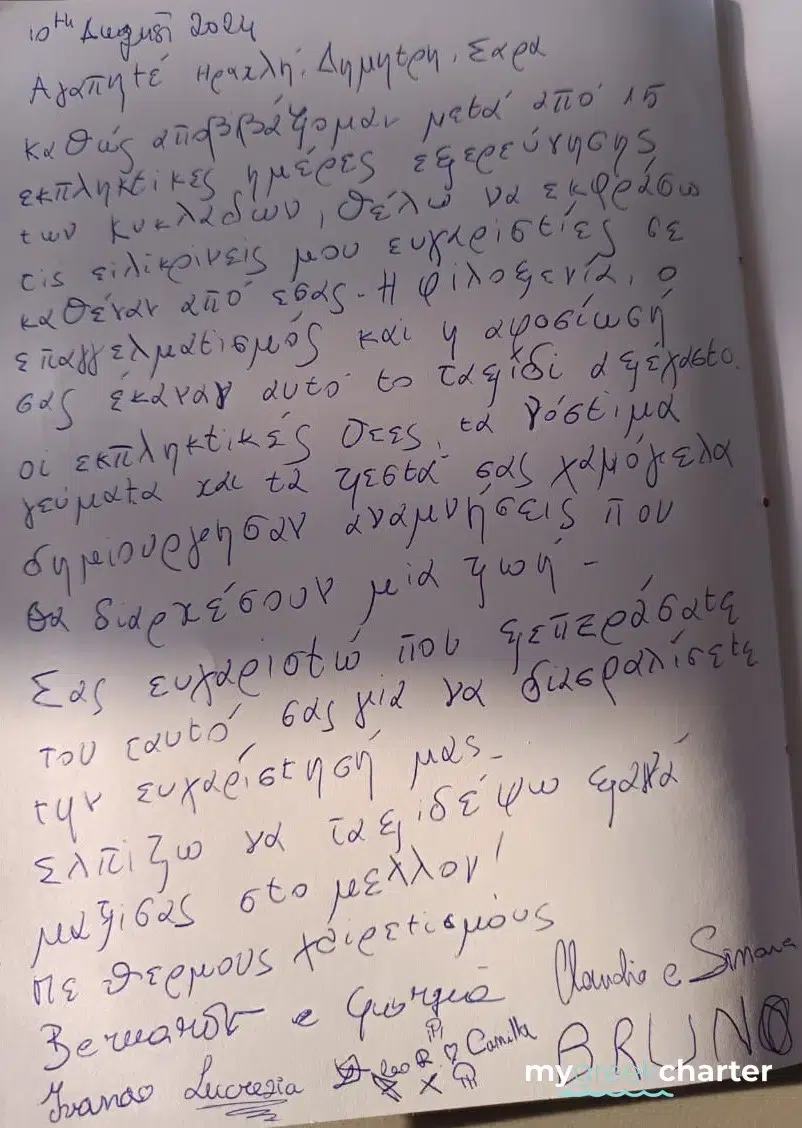 10th August 2024
Αγαπητέ Ηρακλή, Δημητρη, Σαρα
καθώς αποβιβάζομαν μετά από 15
εκπληκτικές ημέρες εξερεύνησης
των κυκλάδων, θέλω να εκφράσω
τις ειλικρινείς μου ευχαριστίες σε
καθέναν από εσας - Η φιλοξενία, ο
επαγγελματισμός και η αφοσίωσή
σας έκαναν αυτο το ταξίδι αξέχαστο.
οι εκπληκτικές θεες, τα νόστιμα
γεύματα και τα ζεστά σας χαμόγελα
δημιουργησαν αναμνήσεις που
θα διαρκέσουν μια ζωή -
Σας ευχαριστώ που ξεπεράσατε
του εαυτό σας για να διασφαλίσετε
την ευχαρίστησή μας -
Ελπίζω να ταξιδέψω ξανά
μαζι σας στο μελλον!
Με θερμους χαιρετισμούς
Bernardo e Giorgia Claudio e Simona
Ivano Lucrezia Leo Camilla BRUNO
mygreekcharter